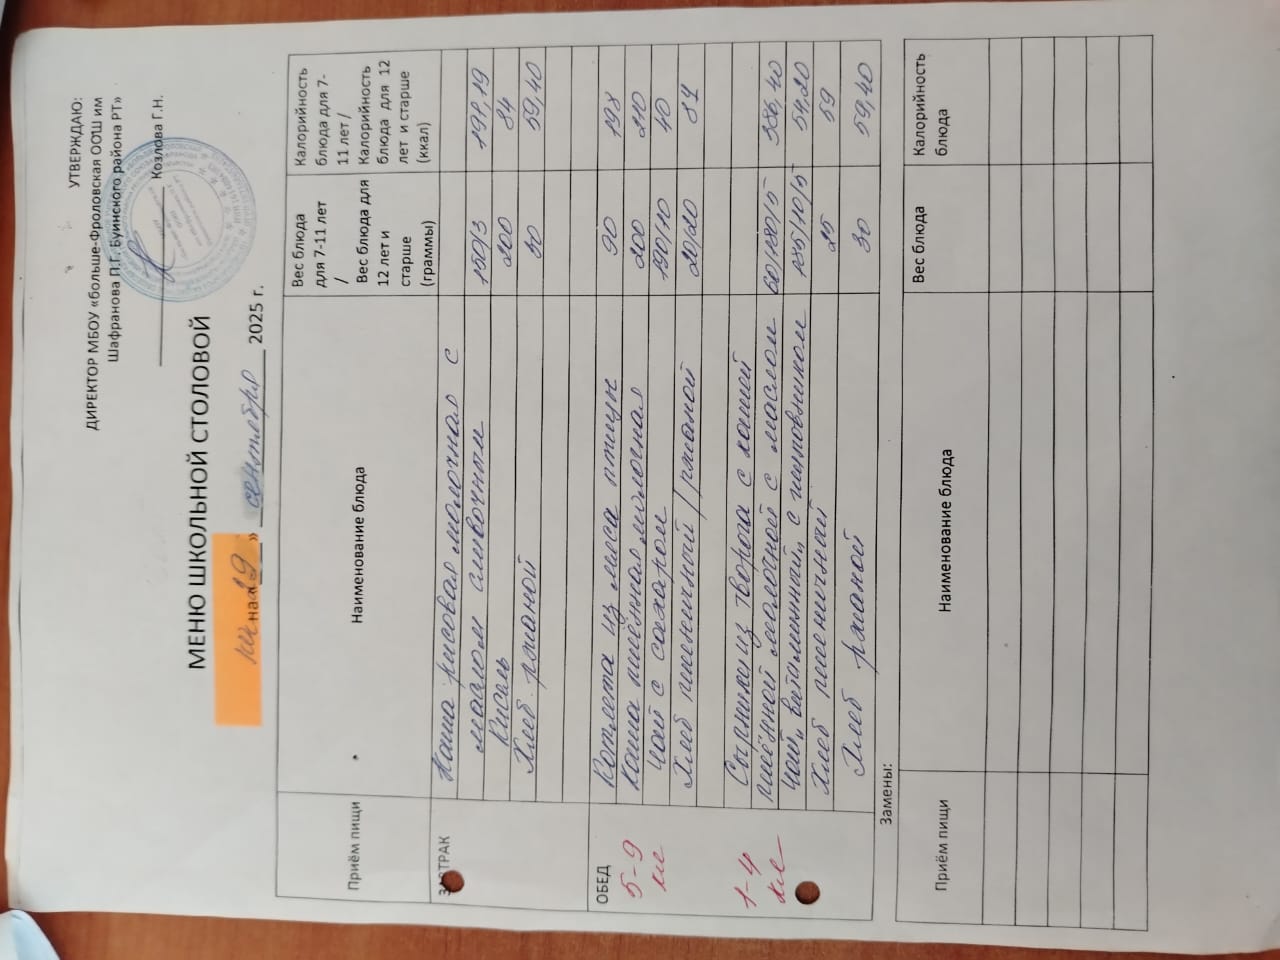 УТВЕРЖДАЮ:
ДИРЕКТОР МБОУ «больше-Фроловская ООШ им
Шафранова П.Г. Буинского района РТ»
Козлова Г.Н.
МЕНЮ ШКОЛЬНОЙ СТОЛОВОЙ
на 19 » сентября 2025 г.
Приём пищи Наименование блюда Вес блюда для 7-11 лет / Вес блюда для 12 лет и старше (граммы) Калорийность блюда для 7-11 лет / Калорийность блюда для 12 лет и старше (ккал)
ЗАВТРАК Каша рисовая молочная с
маслом сливочным 150/3 198,19
Кисель 200 84
Хлеб ржаной 30 59,40
ОБЕД
5-9 кл
Котлета из мяса птицы 90 198
Каша пшённая молочная 200 210
Чай с сахаром 190/10 40
Хлеб пшеничный/ржаной 20/20 81
1-4 кл
Сырники из творога с кашей
пшённой молочной с маслом 60/180/5 386,40
Чай „витаминный„ с шиповником 185/10/5 54,20
Хлеб пшеничный 25 59
Хлеб ржаной 30 59,40
Замены:
Приём пищи Наименование блюда Вес блюда Калорийность блюда